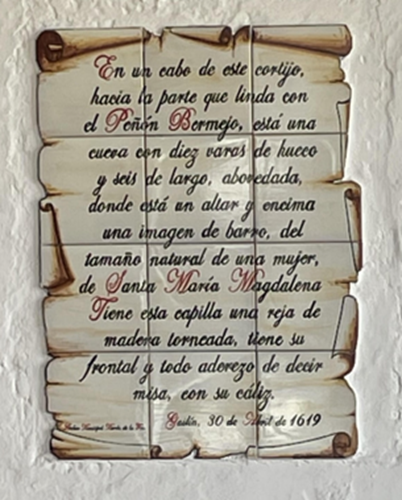 En un cabo de este cortijo,
hacia la parte que linda con
el Peñón Bermejo, está una
cueva con diez varas de hueco
y seis de largo, abovedada,
donde está un altar y encima
una imagen de barro, del
tamaño natural de una mujer,
de Santa María Magdalena
Tiene esta capilla una reja de
madera torneada, tiene su
frontal y todo aderezo de decir
misa, con su cáliz.
30 de Abril de 1619